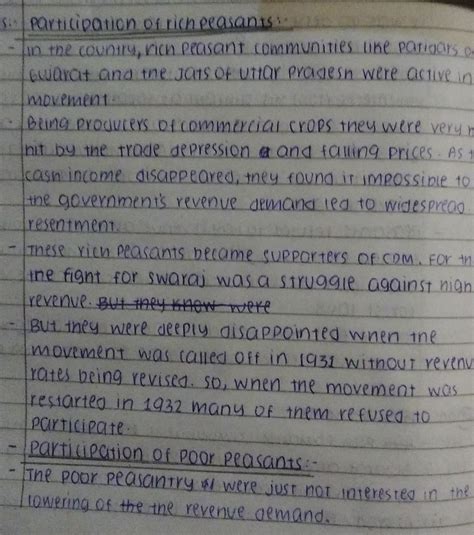 s:- Participation of rich peasants:-
- In the country, rich peasant communities like patidars of
Gujarat and the Jats of Uttar Pradesh were active in
movement.
- Being producers of commercial crops they were very
hit by the trade depression and falling prices. As
cash income disappeared, they found it impossible to
the government's revenue demand led to widespread
resentment.
- These rich peasants became supporters of CDM. For
the fight for swaraj was a struggle against high
revenue. But they know were
- But they were deeply disappointed when the
movement was called off in 1931 without revenu
rates being revised. So, when the movement was
restarted in 1932 many of them refused to
participate.
- Participation of poor peasants:-
- The poor peasantry were just not interested in the
lowering of the the revenue demand.